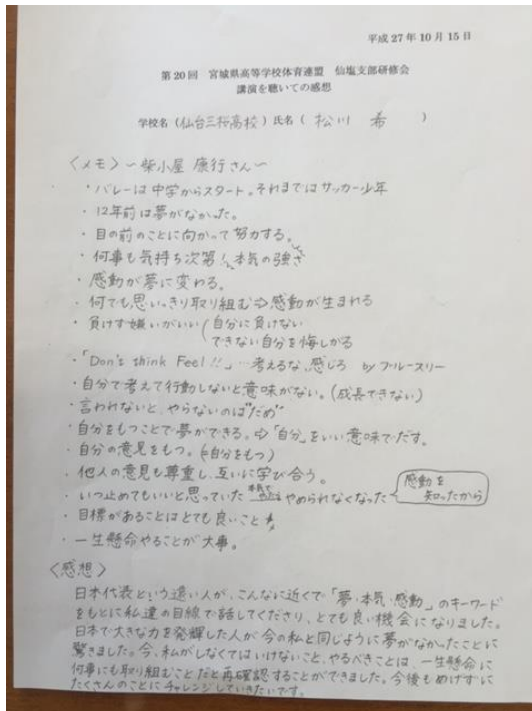 平成27年10月15日
第20回 宮城県高等学校体育連盟 仙塩支部研修会
講演を聴いての感想
学校名(仙台三桜高校)氏名( 松川 希 )
〈メモ〉~柴小屋 康行さん~
・バレーは中学からスタート。それまではサッカー少年
・12年前は夢がなかった。
・目の前のことに向かって努力する。
・何事も気持ち次第!本気の強さ
・感動が夢に変わる。
・何でも思いっきり取り組む⇨感動が生まれる
・負けず嫌いがいい(自分に負けない
できない自分を悔しがる
・「Don's think Feel!!」…考えるな、感じろ byブルースリー
・自分で考えて行動しないと意味がない。(成長できない)
・言われないと、やらないのは"だめ"
・自分をもつことで夢ができる。⇨「自分」をいい意味でだす。
・自分の意見をもつ。(=自分をもつ)
・他人の意見も尊重し、互いに学び合う。
・いつ止めてもいいと思っていた 本気で やめられなくなった 感動を知ったから
・目標があることはとても良いこと
・一生懸命やることが大事。
〈感想〉
日本代表という遠い人が、こんなに近くで「夢・本気・感動」のキーワード
をもとに私達の目線で話してくださり、とても良い機会になりました。
日本で大きな力を発揮した人が今の私と同じように夢がなかったことに
驚きました。今、私がしなくてはいけないこと、やるべきことは、一生懸命に
何事にも取り組むことだと再確認することができました。今後もめげずに
たくさんのことにチャレンジしていきたいです。